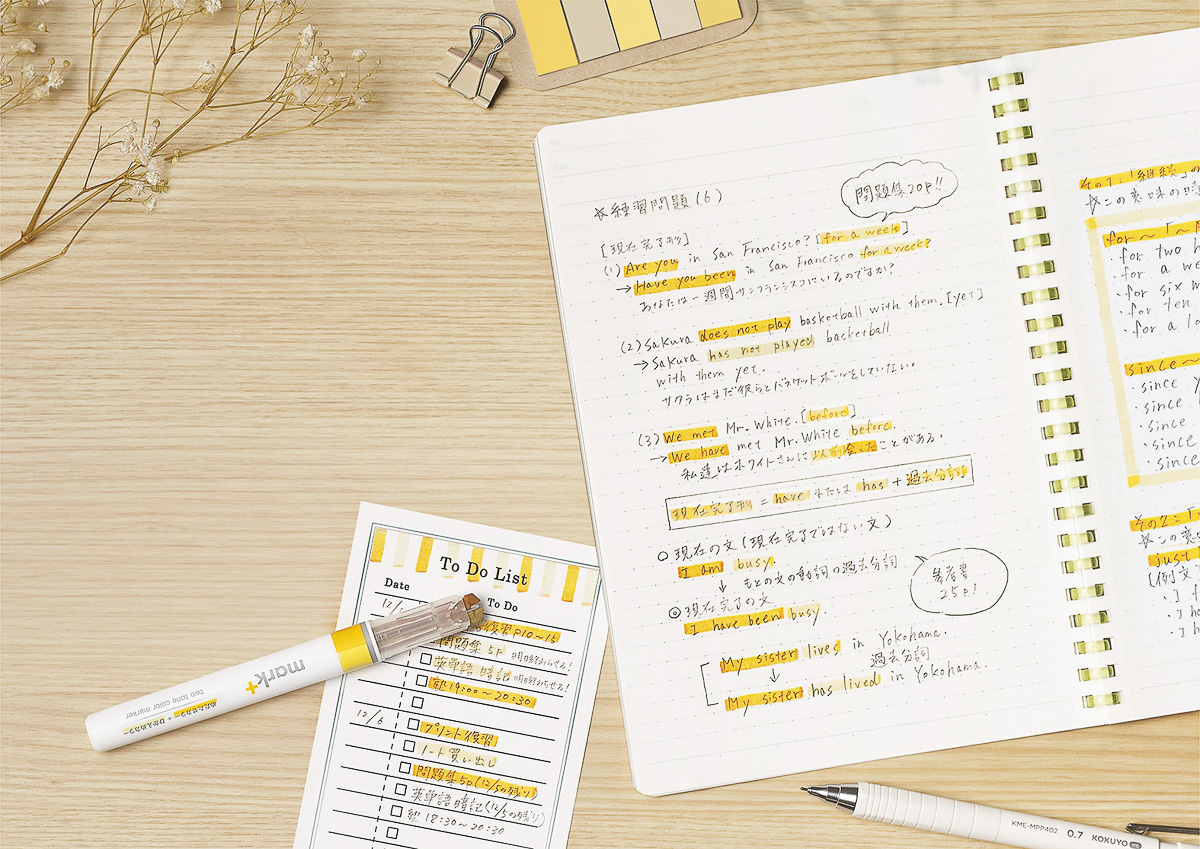 ☆練習問題(6)
問題集20p!!
[現在完了形]
(1) Are you in San Francisco? [for a week]
→ Have you been in San Francisco for a week?
あなたは一週間サンフランシスコにいるのですか?
(2) Sakura does not play basketball with them. [yet]
→ Sakura has not played basketball
with them yet.
サクラはまだ彼らとバスケットボールをしていない。
(3) We met Mr. White. [before]
→ We have met Mr. White before.
私達はホワイトさんに以前会ったことがある。
現在完了形 = have または has + 過去分詞
○ 現在の文(現在完了ではない文)
I am busy.
↓ もとの文の動詞の過去分詞
◎現在完了の文
I have been busy.
参考書
25p!
My sister lives in Yokohama.
↓ 過去分詞
My sister has lived in Yokohama.
その1:「継続」の
☆この意味の時
for~「~
・for two h
・for a we
・for six m
・for ten
・for a lo
since~
・since y
・since
・since
・since
・since
その2:「
☆この意味
just
[例文
・I f
・I ha
・I ha
To Do List
Date To Do
12/
復習 p10~15
問題集 5p 明日終わらせる!
英単語 暗記 明日終わらせる!
塾 19:00~20:30
12/6 プリント復習
ノート買い出し
問題集 5p (12/5の残り)
英単語 暗記 (12/5の残り)
塾 18:30~20:30
mark+
two tone color marker
めだたせカラー + ひかえめカラー
KME-MPP402 0.7 KOKUYO ME